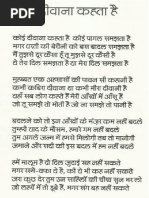 दीवाना कहता है
कोई दीवाना कहता है कोई पागल समझता है
मगर धरती की बेचैनी को बस बादल समझता है
मैं तुझसे दूर कैसा हूँ तू मुझसे दूर कैसी है
ये तेरा दिल समझता है या मेरा दिल समझता है
मुहब्बत एक अहसासों की पावन सी कहानी है
कभी कबिरा दीवाना था कभी मीरा दीवानी है
यहाँ सब लोग कहते हैं मेरी आँखों में आँसू हैं
जो तू समझे तो मोती है जो ना समझे तो पानी है
बदलने को तो इन आँखों के मंज़र कम नहीं बदले
तुम्हारी याद के मौसम, हमारे ग़म नहीं बदले
तुम अगले जन्म में हमसे मिलोगी तब तो मानोगी
जमाने और सदी की इस बदल में हम नहीं बदले
हमें मालूम है दो दिल जुदाई सह नहीं सकते
मगर रस्मे-वफ़ा ये है, कि ये भी कह नहीं सकते
जरा कुछ देर तुम उन साहिलों की चीख सुन भर लो
जो लहरों में तो डूबे हैं, मगर संग बह नहीं सकते